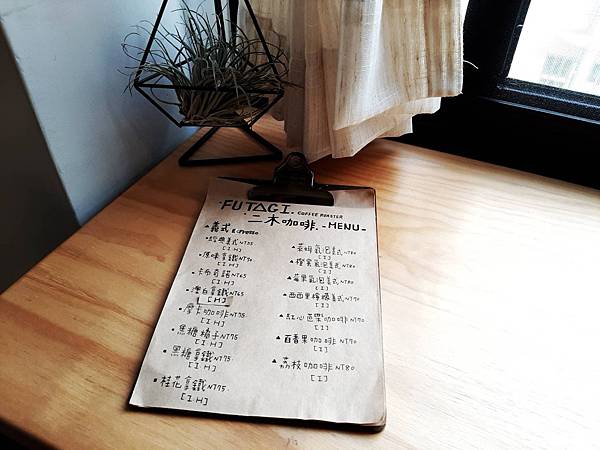 FUTAGI. COFFEE ROASTER
二木咖啡. -MENU-
▲義式 Espresso
經典美式 NT55
[I.H]
原味拿鐵 NT70
[I.H]
卡布奇諾 NT65
[I.H]
澳白拿鐵 NT65
[H]
摩卡咖啡 NT75
[I.H]
焦糖橘子 NT75
[I.H]
黑糖拿鐵 NT75
[I.H]
桂花拿鐵 NT75
[I.H]
▲萊姆氣泡美式 NT80
[I]
▲ 氣泡美式 NT80
[I]
▲蘋果氣泡美式 NT80
[I]
▲西西里檸檬美式 NT70
[I]
▲紅心芭樂咖啡 NT70
[I]
▲百香果咖啡 NT70
[I]
▲荔枝咖啡 NT80
[I]